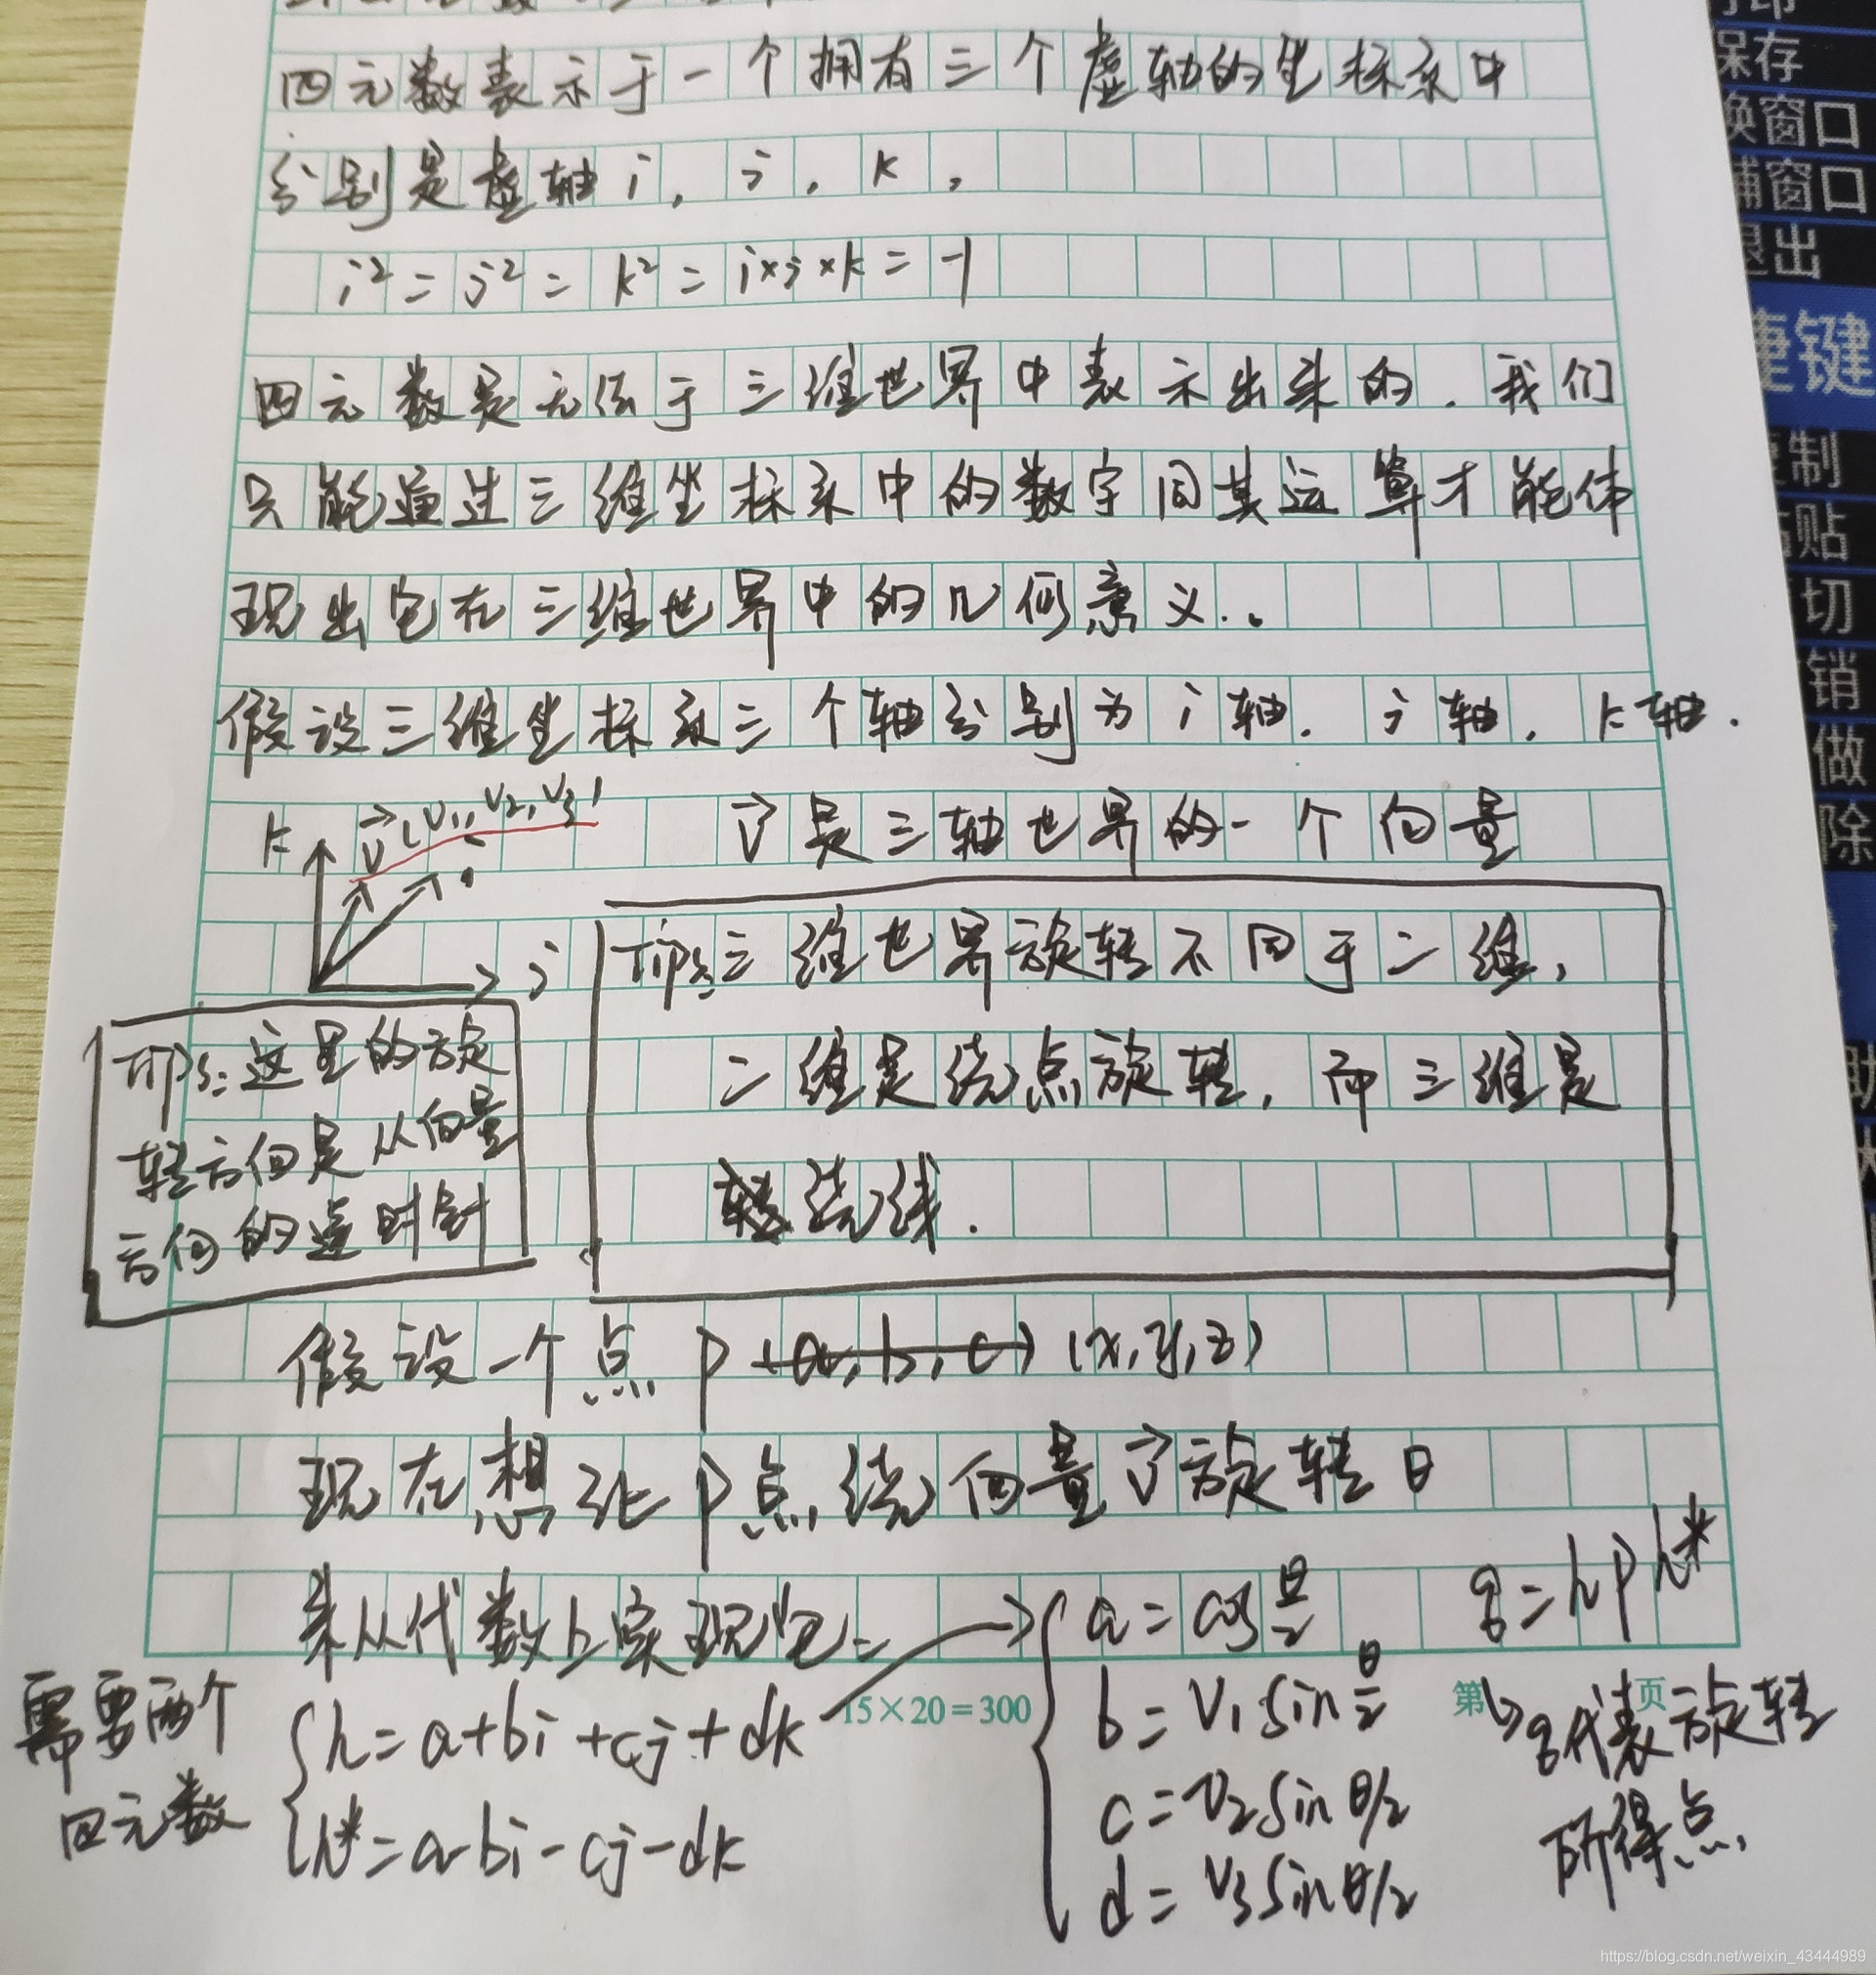 四元数表示于一个拥有三个虚轴的坐标系中
分别是虚轴i,j,k,
i²=j²=k²=i×j×k=-1
四元数是无法于三维世界中表示出来的.我们
只能通过三维坐标系中的数字同其运算才能体
现出它在三维世界中的几何意义..
假设三维坐标系三个轴分别为i轴.j轴,k轴.
k
v⃗(v₁,v₂,v₃)
i
j
v⃗是三轴世界的一个向量
即ps:三维世界旋转不同于二维,
二维是绕点旋转,而三维是
转绕线.
ps:这里的旋
转方向是从向量
方向的逆时针
假设一个点P (a,b,c) (x,y,z)
现在想让P点绕向量v⃗旋转θ
来从代数上实现它:
需要两个
四元数
h=a+bi+cj+dk
h*=a-bi-cj-dk
a=cos θ/2
b=v₁sin θ/2
c=v₂sinθ/2
d=v₃sinθ/2
q=hph*
q代表旋转
所得点
15×20=300
第 页
保存
换窗口
窗口
退出
捷键
复制
粘贴
切
销
做
除
助
https://blog.csdn.net/weixin_43444989